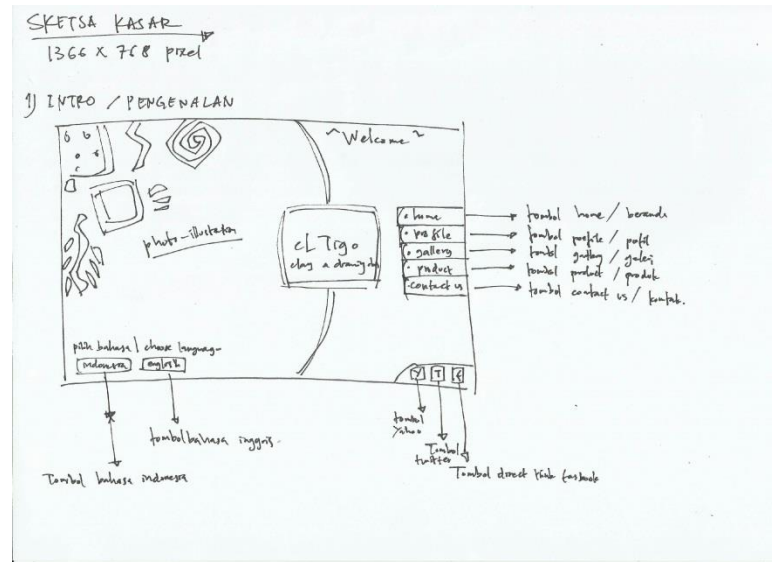 SKETSA KASAR
1366 X 768 pixel
1) INTRO / PENGENALAN
~Welcome~
photo-illustration
cL Tigo
clay & drawing
• home
• profile
• gallery
• product
• contact us
tombol home / beranda
tombol profile / profil
tombol gallery / galeri
tombol product / produk
tombol contact us / kontak.
pilih bahasa / choose language
indonesia
english
Y
T
f
tombol bahasa inggris.
Tombol bahasa indonesia
tombol Yahoo
Tombol twitter
Tombol direct link facbook